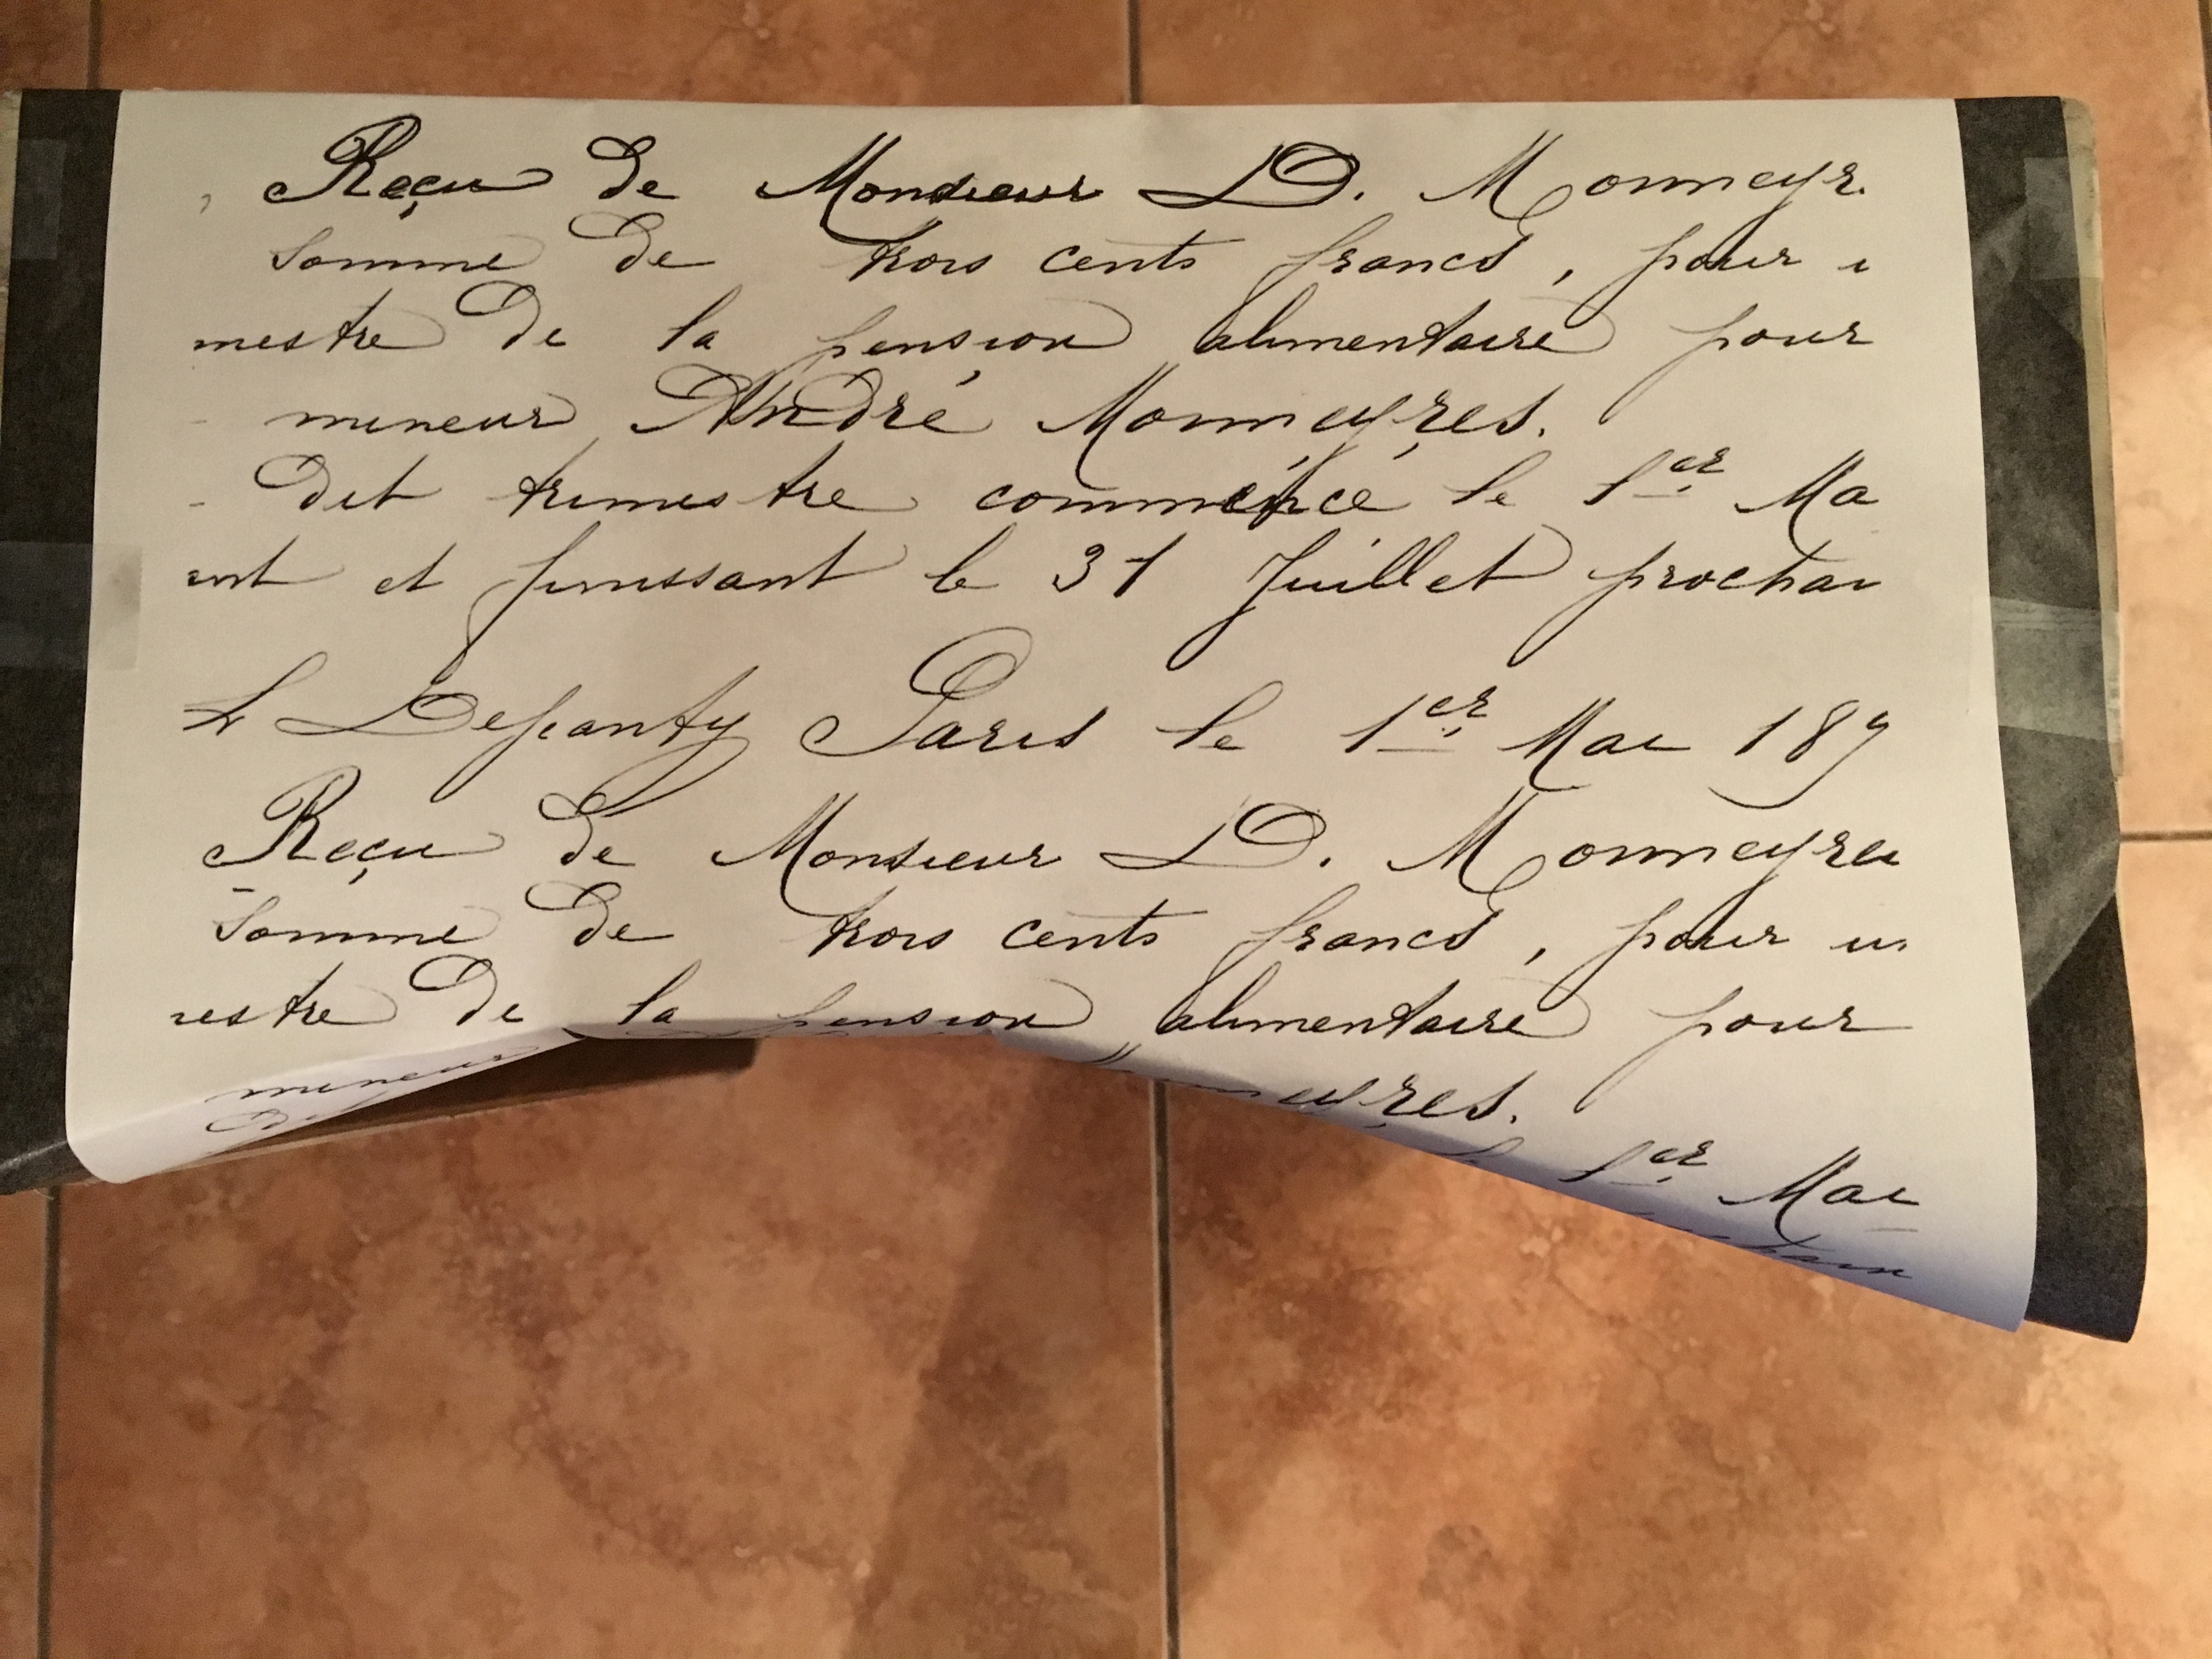 Reçu de Monsieur D. Monneyr
somme de trois cents francs, pour
mestre de la pension alimentaire pour
mineur André Monneyres.
Dit trimestre commencé le 1er Ma
ant et finissant le 31 Juillet prochai
Paris le 1er Mai 189
Reçu de Monsieur D. Monneyres
somme de trois cents francs, pour un
estre de la pension alimentaire pour
mineur eyres.
1er Mai